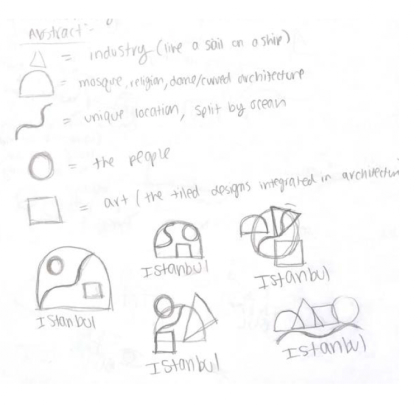 Abstract-
= industry (like a sail on a ship)
= mosque, religion, dome/curved architecture
= unique location, split by ocean
= the people
= art (the tiled designs integrated in architectu
Istanbul
Istanbul
Istanbul
Istanbul
Istanbul